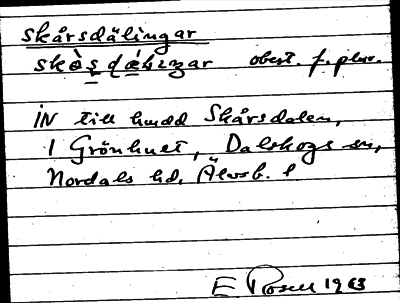 skårsdälingar
skò̱ṣḍæ̀lıŋar obest. f. plur.
IN till hmdd Skårsdalen,
1 Grönhult, Dalskogs sn,
Nordals hd, Älvsb. l
E Rosell 1963